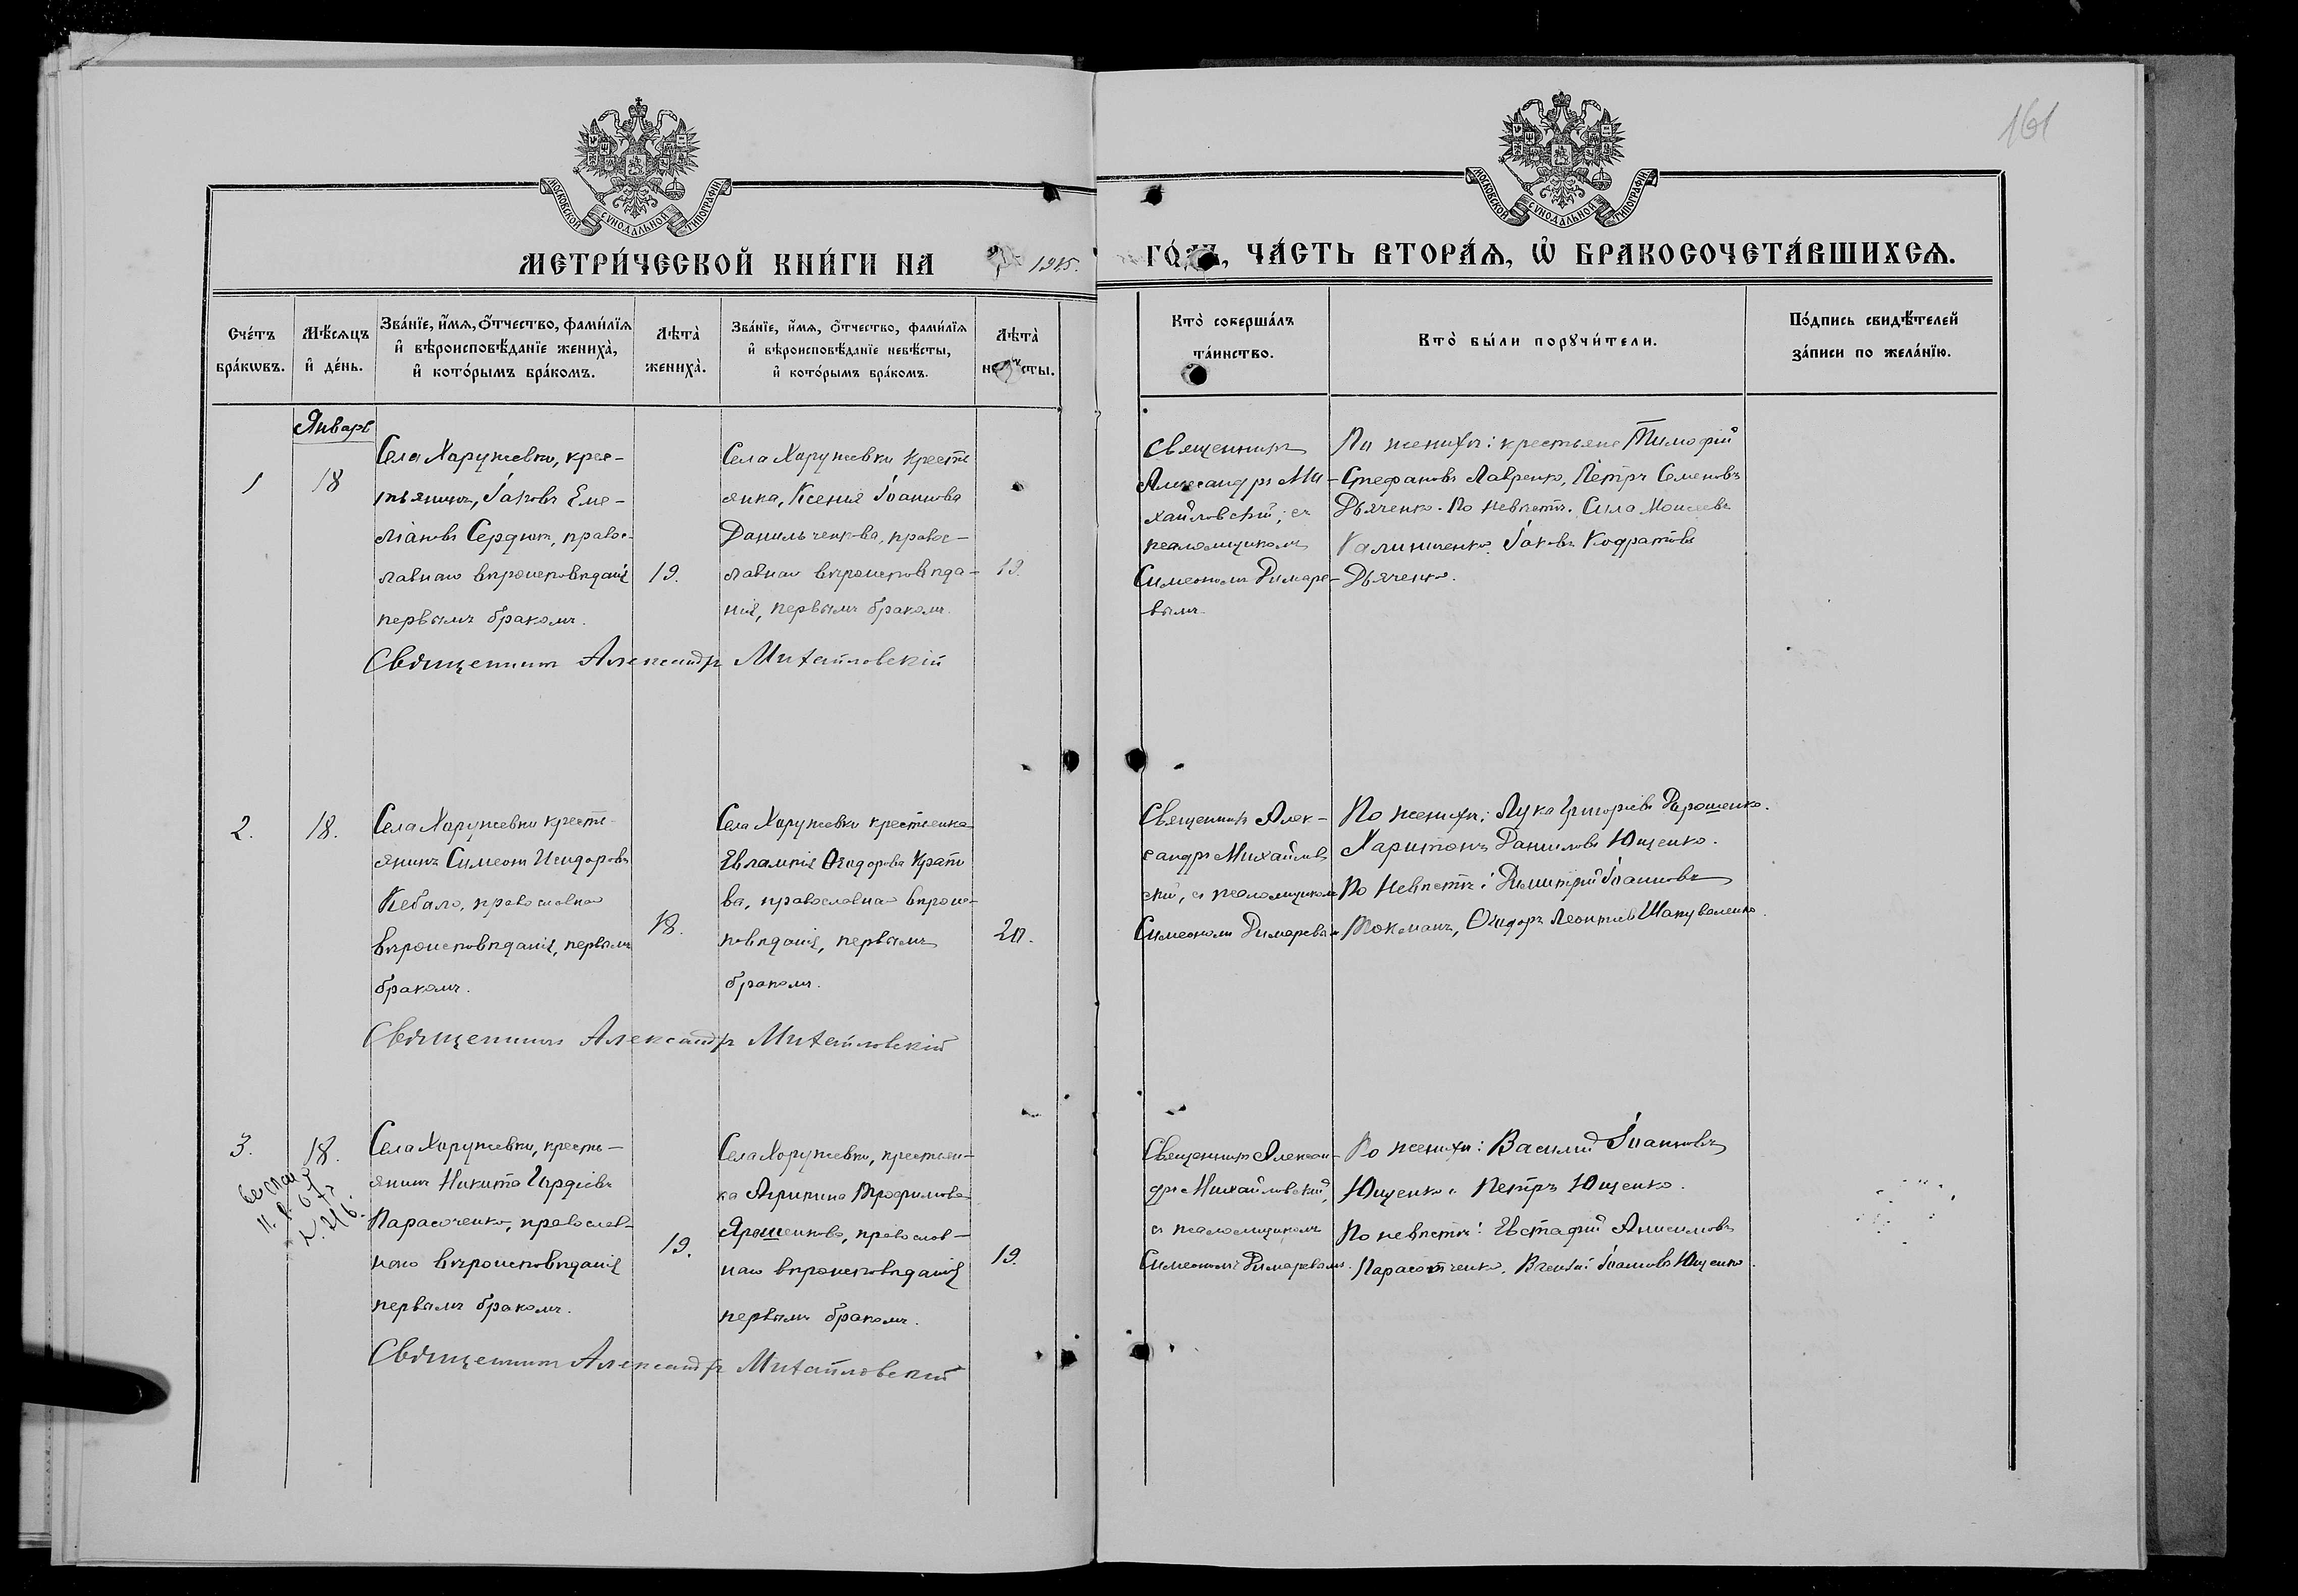 161
МОСКОВСКОЙ СѴНОДАЛЬНОЙ ТИПОГРАФІИ
МОСКОВСКОЙ СѴНОДАЛЬНОЙ ТИПОГРАФІИ
МЕТРИ́ЧЕСКОЙ КНИ́ГИ НА 1915. ГО́ДЪ, ЧА́СТЬ ВТОРА́Ѧ, Ѽ БРАКОСОЧЕТА́ВШИХСѦ.
Сче́тъ бра́кѡвъ.
Мѣ́сяцъ и҆ де́нь.
Зва́нїе, и҆́мѧ, ѻ҆́тчество, фами́лїѧ
и҆ вѣроисповѣ́данїе жениха̀,
и҆ кото́рымъ бра́комъ.
Лѣта̀ жениха̀.
Зва́нїе, и҆́мѧ, ѻ҆́тчество, фами́лїѧ
и҆ вѣроисповѣ́данїе невѣ́сты,
и҆ кото́рымъ бра́комъ.
Лѣта̀ невѣ́сты.
Кто̀ соверша́лъ та́инство.
Кто̀ бы́ли порꙋчи́тели.
По́дпись свидѣ́телей за́писи по жела́нїю.
Январь
1
18
Села Харужевки, крес-
тьянинъ, Іаковъ Еме-
ліановъ Сердюкъ, правос-
лавнаго вѣроисповѣданія
первымъ бракомъ.
19.
Села Харужевки кресть
янка, Ксенія Іоаннова
Данильченкова, правос-
лавнаго вѣроисповѣда-
нія, первымъ бракомъ.
19.
Священникъ
Александръ Ми-
хайловскій, съ
псаломщикомъ
Симеономъ Димаре-
вымъ.
По женихѣ: крестьяне Тимофій
Стефановъ Лавренко, Петръ Семеновъ
Дьяченко. По невѣстѣ. Сила Моисеевъ
Калиниченко, Іаковъ Кодратовъ
Дьяченко.
Священникъ Александръ Михайловскій
2.
18.
Села Харужевки кресть-
янинъ Симеонъ Исидоровъ
Кебало, православнаго
вѣроисповѣданія, первымъ
бракомъ.
18.
Села Харужевки крестьянка
Евлампія Ѳеодорова
ва, православнаго вѣроис-
повѣданія, первымъ
бракомъ.
20.
Священникъ Алек-
сандръ Михайлов
скій, съ псаломщикомъ
Симеономъ Димаревымъ
По женихѣ: Лука Григоріевъ Дорошенко.
Харитонъ Даниловъ Ющенко.
По невѣстѣ: Димитрій Іоанновъ
Токманъ, Леонтіевъ Шаповаленко.
Священникъ Александръ Михайловскій
3.
18.
Села Харужевки, кресть-
янинъ Никита Гордіевъ
Парасоченко, православ-
наго вѣроисповѣданія
первымъ бракомъ.
19.
Села Харужевки, крестьян-
ка Агрипина Трофимова
Ярошенкова, православ-
наго вѣроисповѣданія
первымъ бракомъ.
19.
Священникъ Алексан-
дръ Михайловскій,
съ псаломщикомъ
Симеономъ Димаревымъ.
По женихѣ: Василій Іоанновъ
Ющенко и Петръ Ющенко.
По невѣстѣ: Евстафій Анисимовъ
Парасотченко, Іоанновъ Ющенко.
Священникъ Александръ Михайловскій